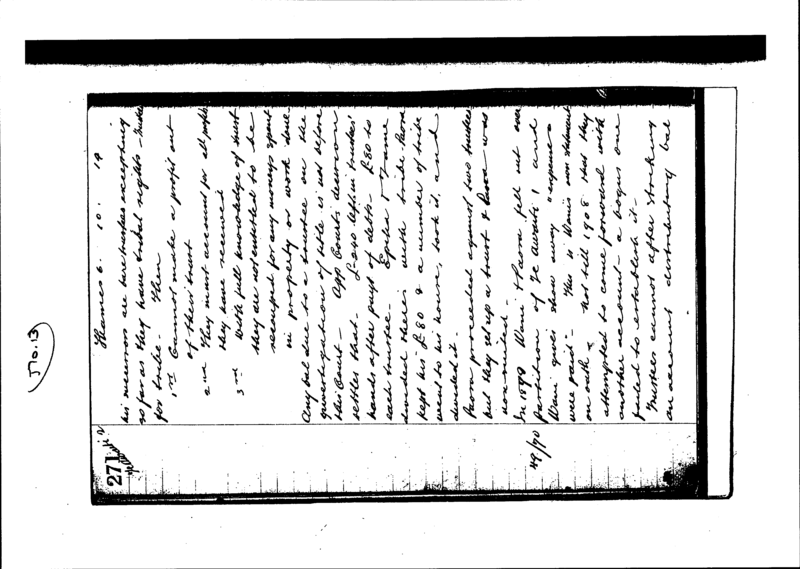 No. 13
271
Thames 6. 10. 19
his successors are here trustees excepting
so far as they have tribal rights - Trustee
for tribe. Then
1st Cannot make a profit out
of their trust
2nd They must account for all profits
they have received
3rd With full knowledge of trust
they are not entitled to be
recouped for any moneys spent
in property or work done
Any bal due to a trustee on the
investigation of title is not before
this Court - App Courts decision
settles that. £240 left in trustees
hands after payt of debts. £80 to
each trustee.
divided theirs with tribe
kept his £80 & a number of tribe
went to his house, took it and
divided it.
proceeded against two trustees
but they set up a trust & was
In 1890 Wani & fell out over
49/90
partition of Te Awaiti 1 and
Wani gives show away expenses
were paid - This is Wani's own statement
on oath & not till 1908 that they
attempted to come forward with
another account - a bogus one
failed to establish it -
Trustees cannot after striking
an account & distributing bal